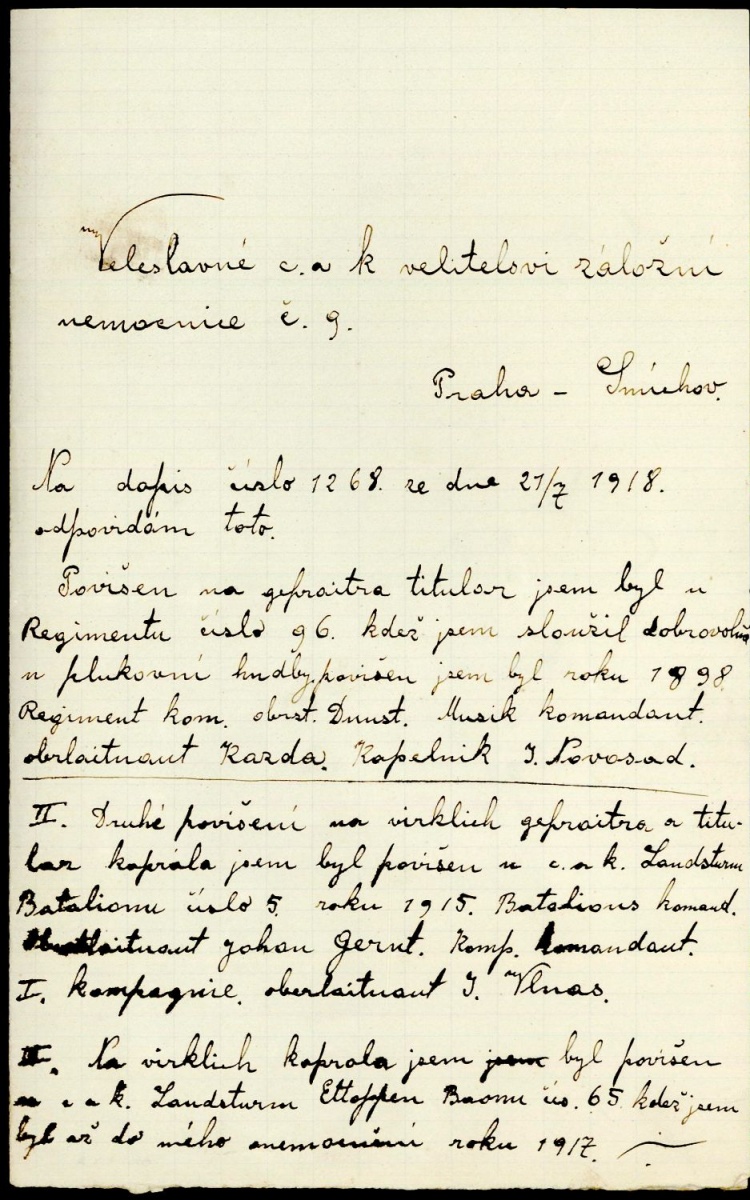 Veleslavné c. a k velitelovi záložní
nemocnice č. 9.
Praha - Smíchov.
Na dopis číslo 1268. ze dne 21/7 1918.
odpovidám toto.
Povišen na gefraitra titular jsem byl u
Regimentu číslo 96. kdež jsem sloužil dobrovolně
u plukovní hudby, povišen jsem byl roku 1898
Regiment kom. obrst. Dunst. Musik komandant.
oberlaitnant Kazda. Kapelnik J. Novosad.
II. Druhé povišení na virklich gefraitra a titu-
lar kaprála jsem byl povišen u c. a k. Landsturm
Batalionu číslo 5. roku 1915. Batalions komand.
Johan Gernt. Komp. komandant.
I. kompagnie. oberlaitnant J. Vlnas.
III. Na virklich kaprala jsem jsem byl povišen
u c a k. Landsturm Ettappen Baonu čís. 65 kdež jsem
byl až do mého onemocnění roku 1917.